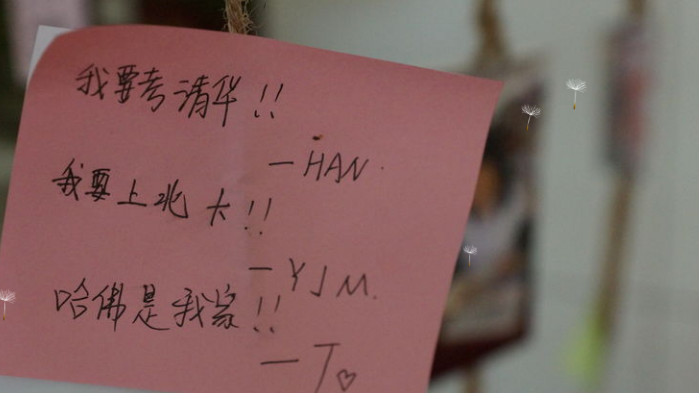 我要考清华!!
—HAN.
我要上北大!!
—YJM.
哈佛是我家!!
—J♡